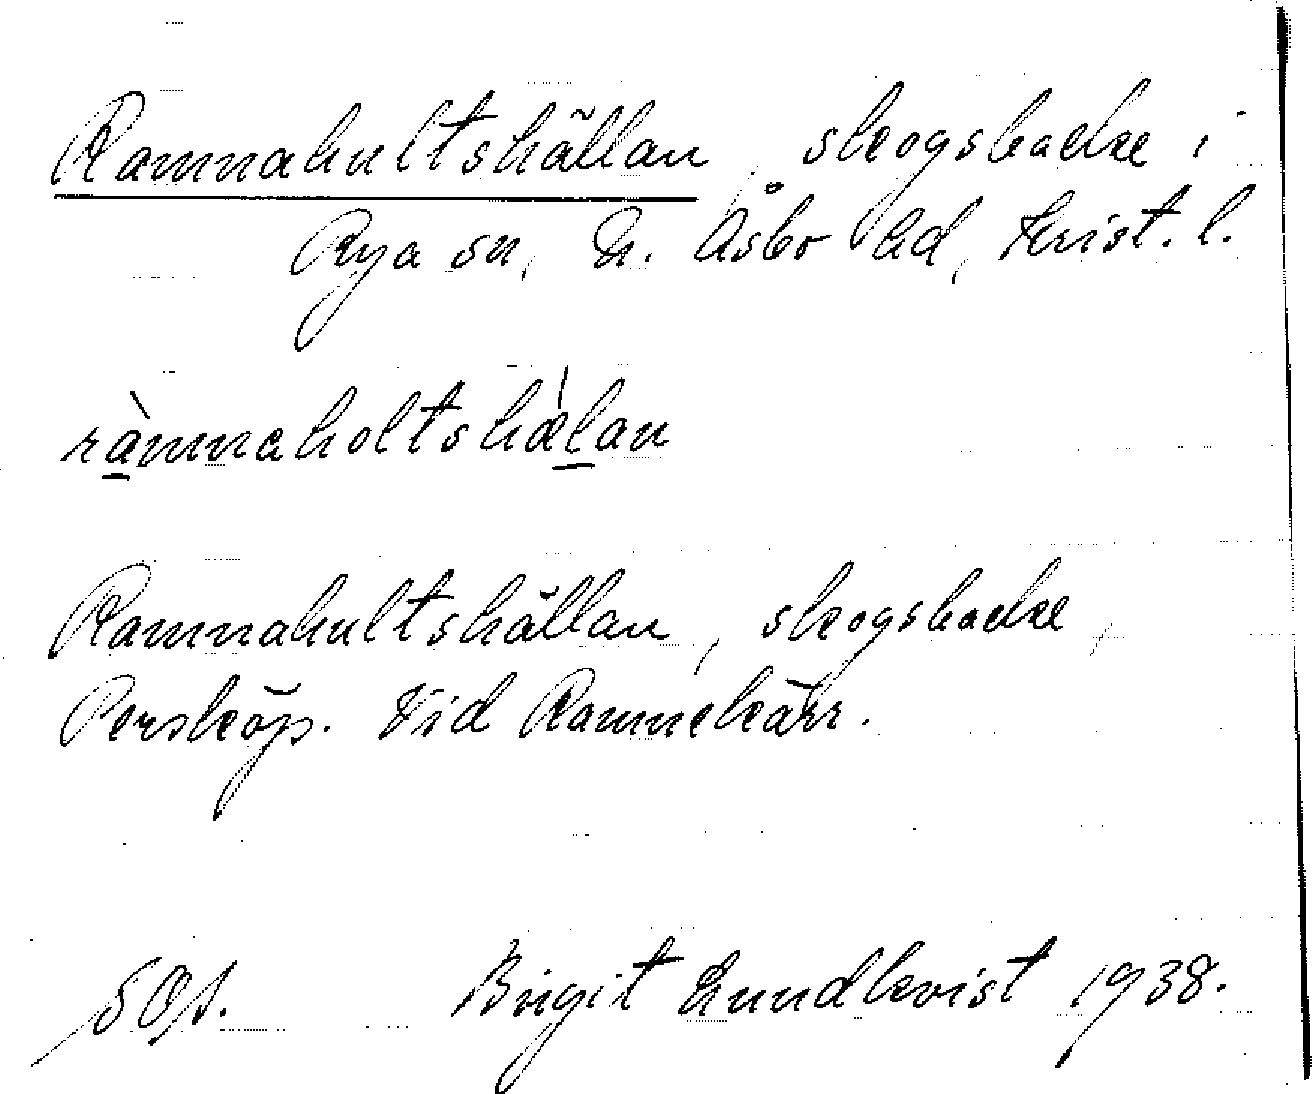 Ramnahultshällan, skogsbacke i
Rya sn, N. Åsbo hd, Krist. l.
ràmnaholtshæ̍lan
Ramnahultshällan, skogsbacke,
Perskǒp. Vid Ramnekärr.
Birgit Lundkvist 1938.